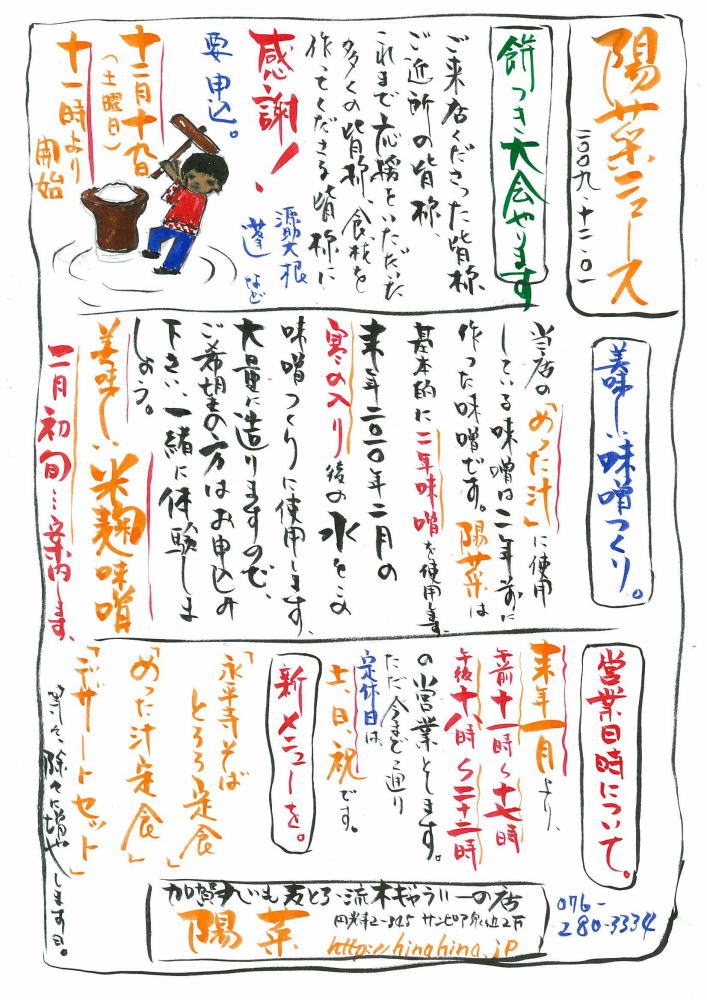 陽菜ニュース
二〇〇九・十二・〇一
餅つき大会やります
ご来店くださった皆様、
ご近所の皆様、
これまで応援をいただいた
多くの皆様、食材を
作ってくださる皆様に
感謝!
源助大根
蓬など
要申込。
十二月十九日
(土曜日)
十一時より
開始
美味しい味噌つくり。
当店の「めった汁」に使用
している味噌は二年前に
作った味噌です。陽菜は
基本的に二年味噌を使用します。
来年二〇一〇年二月の
寒の入り後の水をこの
味噌つくりに使用します。
大量に造りますので、
ご希望の方はお申込み
下さい。一緒に体験しま
しょう。
美味しい米麹味噌
二月初旬…案内します。
営業日時について。
来年一月より、
午前十一時〜十七時
午後十八時〜二十二時
の営業とします。
ただ今まで通り
定休日は、
土、日、祝です。
新メニューを。
「永平寺そば
とろろ定食
「めった汁定食」
「デザートセット」
等々、除々に増やしますヨ。
加賀丸いも麦とろ・流木ギャラリーの店
陽菜
円光寺2-315 サンピア泉ヶ丘2F
http://hinahina.jp
076-
280-3334